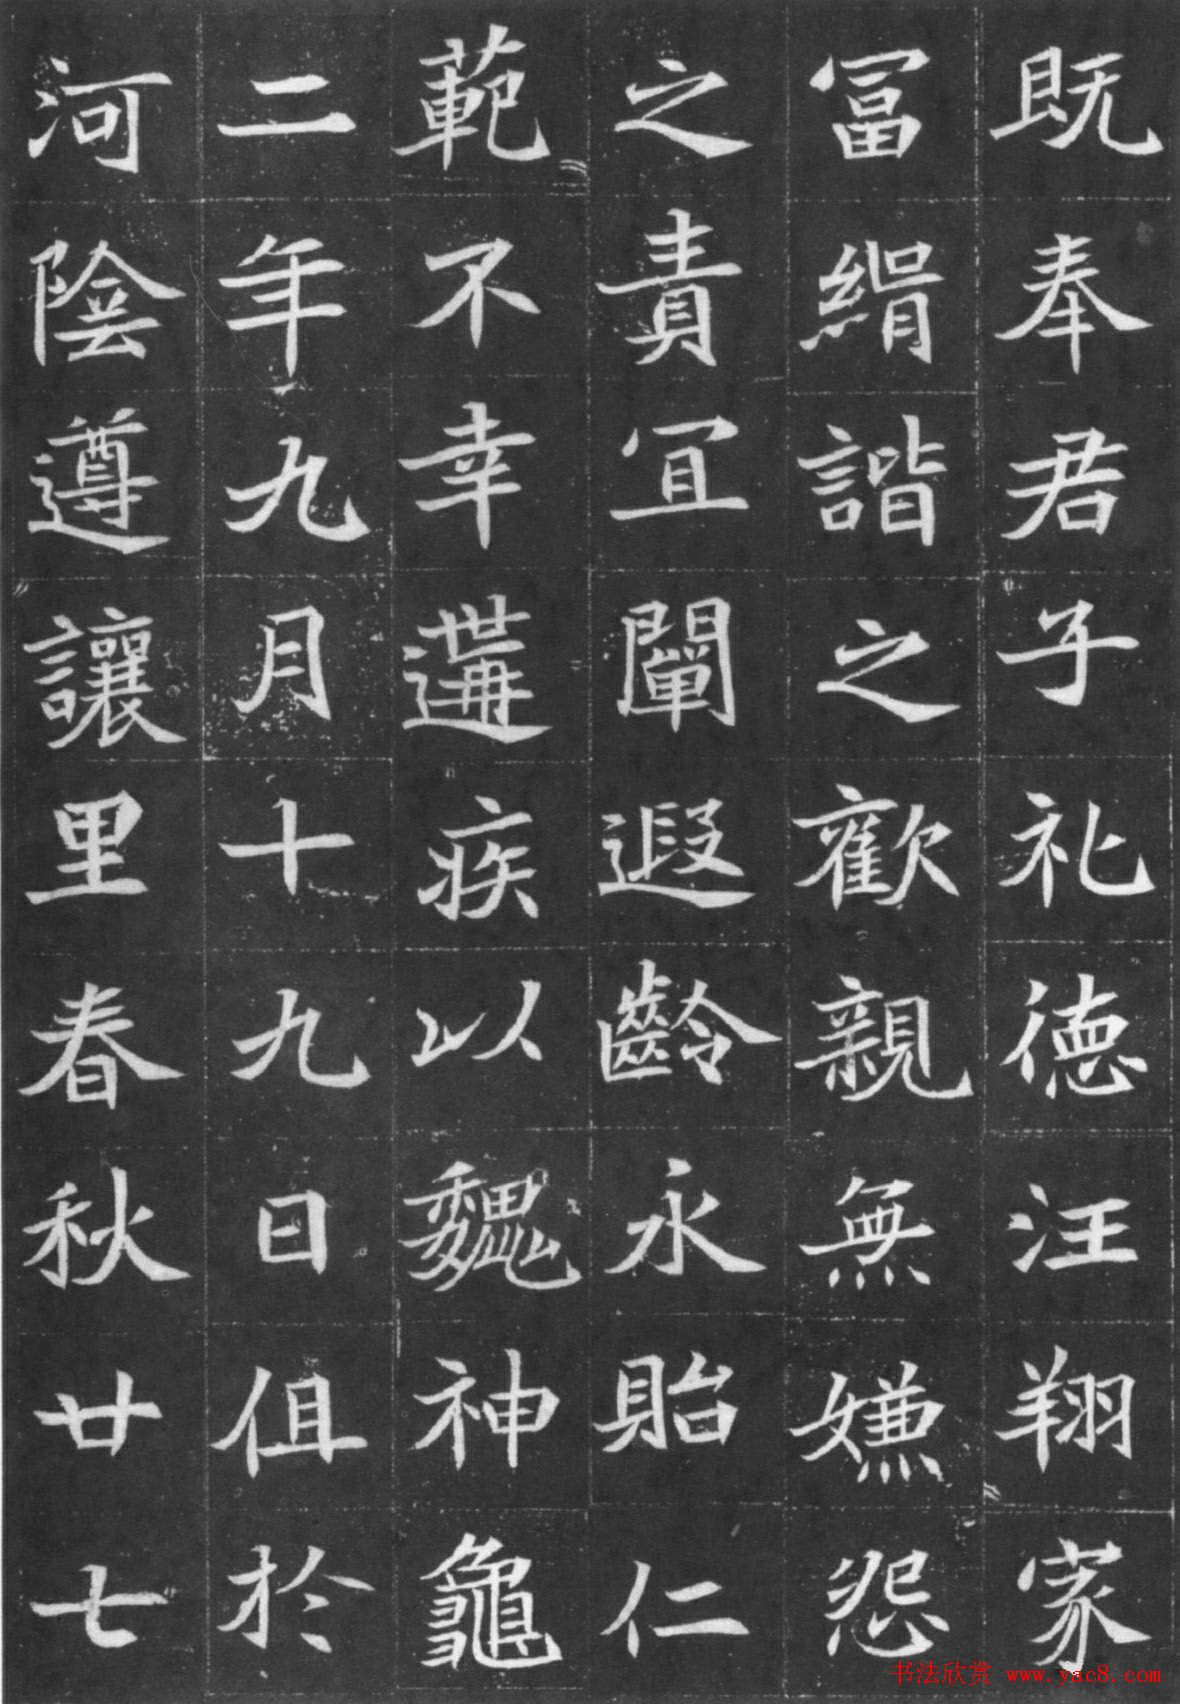 既奉君子礼德汪翔家
冨緝諧之歡親無嫌怨
之責冝闡遐齡永貽仁
範不幸遘疾以魏神龜
二年九月十九日俎於
河陰遵讓里春秋廿七
书法欣赏 www.yac8.com